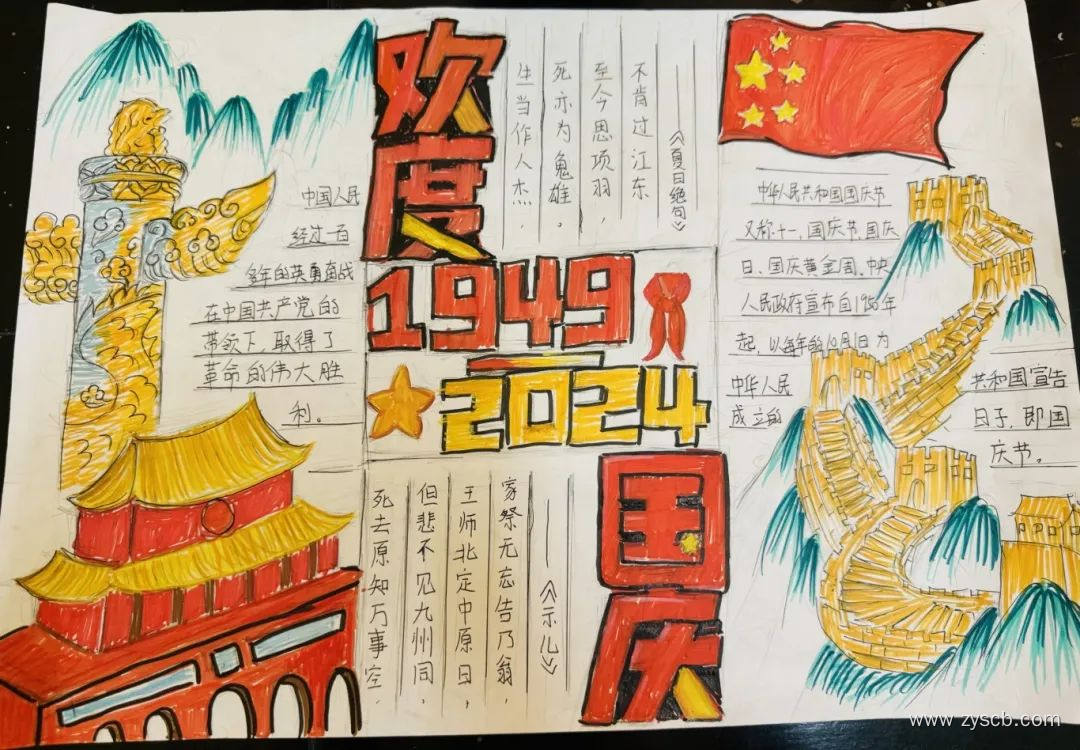 欢度
1949
2024
国庆
中国人民
经过一百
多年的英勇奋战
在中国共产党的
带领下,取得了
革命的伟大胜
利。
生当作人杰，
死亦为鬼雄。
至今思项羽，
不肯过江东
——《夏日绝句》
死去原知万事空，
但悲不见九州同，
王师北定中原日，
家祭无忘告乃翁
——《示儿》
中华人民共和国国庆节
又称十一,国庆节,国庆
日、国庆黄金周,中央
人民政府宣布自1950年
起,以每年的10月1日为
中华人民 共和国宣告
成立的 日子,即国
庆节。
www.zyscb.com